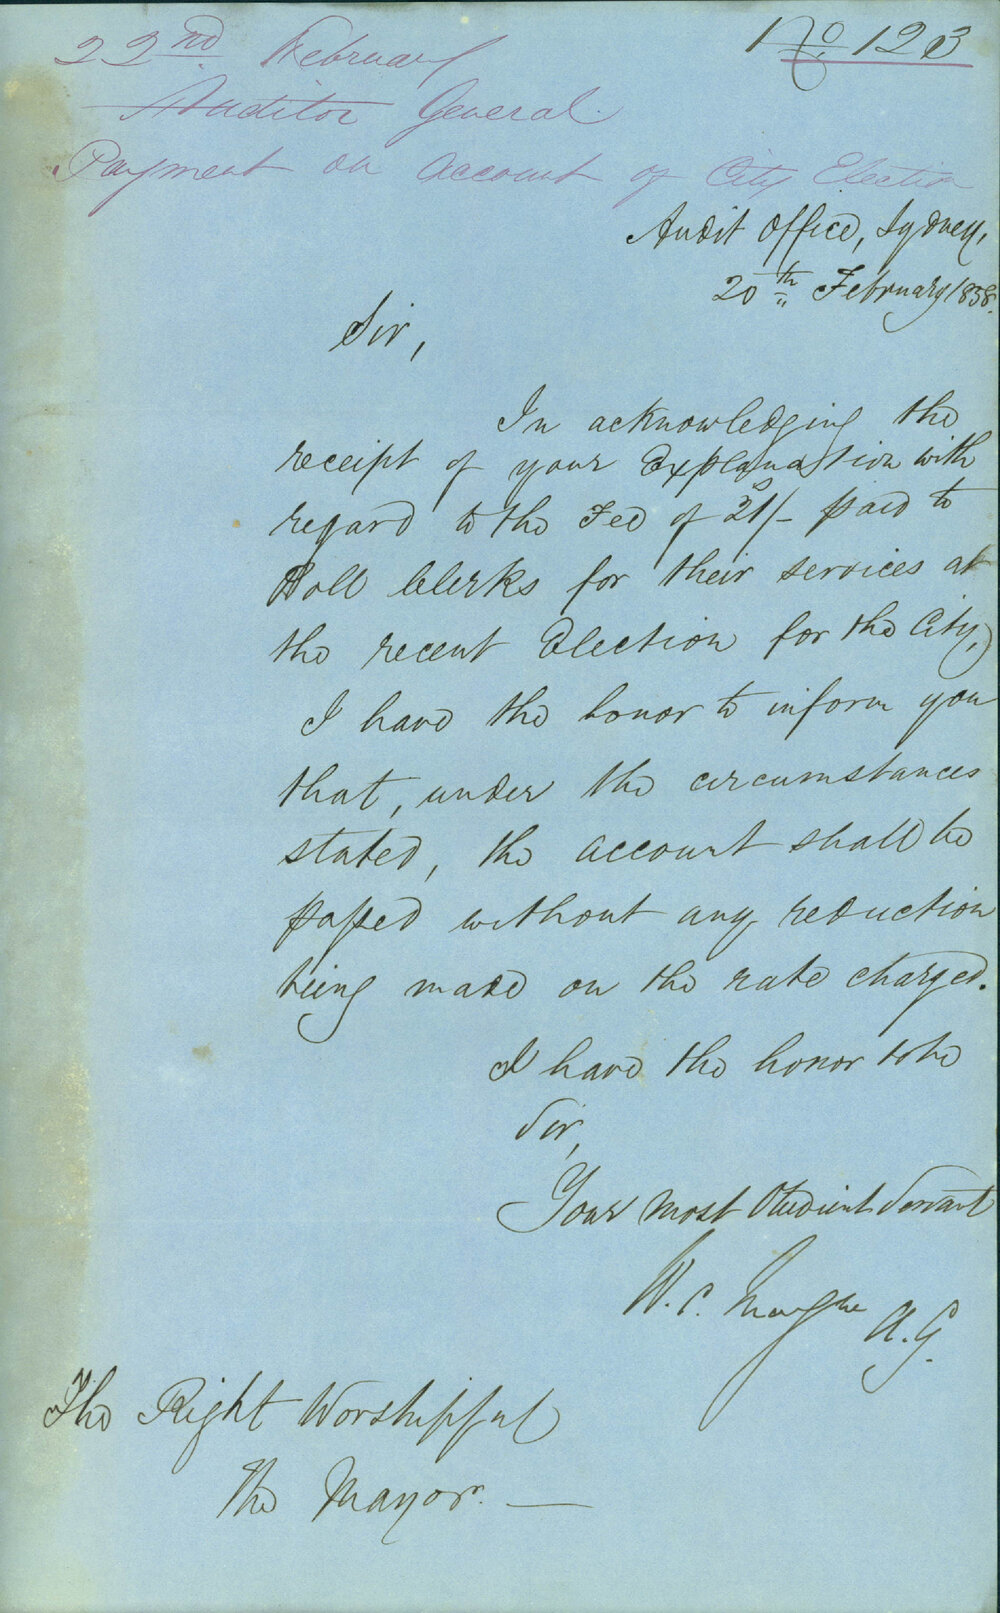 No. 123
22nd February
Auditor General.
Payment on Account of City Election
Audit Office, Sydney,
20th February 1858.
Sir,
In acknowledging the
receipt of your Explanation with
regard to the Fee of 21/- paid to
Poll Clerks for their services at
the recent Election for the City,
I have the honor to inform you
that, under the circumstances
stated, the account shall be
passed without any reduction
being made on the rate charged.
I have the honor to be
Sir,
Your most Obedient Servant
W. C. A.G.
The Right Worshipful
The Mayor. —